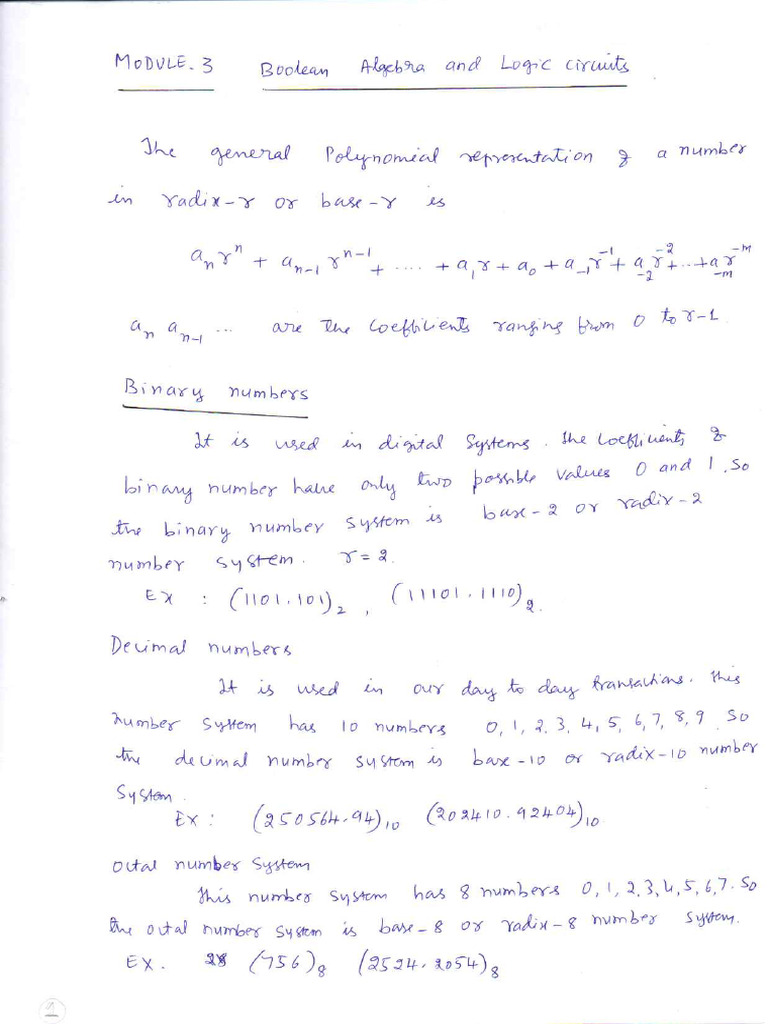 MODULE. 3 Boolean Algebra and Logic circuits
The general Polynomial representation of a number
in radix-r or base-r is
aₙrⁿ + aₙ₋₁ rⁿ⁻¹ + .... + a₁r + a₀ + a₋₁r⁻¹ + a₋₂r⁻² + ... + a₋ₘr⁻ᵐ
aₙ aₙ₋₁ ... are the coefficients ranging from 0 to r-1
Binary numbers
It is used in digital systems. The coefficients of
binary number have only two possible values 0 and 1. So
the binary number system is base-2 or radix-2
number system. r = 2.
EX : (1101.101)₂ , (11101.1110)₂.
Decimal numbers
It is used in our day to day transactions. This
number system has 10 numbers 0, 1, 2, 3, 4, 5, 6, 7, 8, 9 So
the decimal number system is base-10 or radix-10 number
System.
EX : (250564.94)₁₀ (202410.92404)₁₀
Octal number System
This number system has 8 numbers 0, 1, 2, 3, 4, 5, 6, 7. So
the octal number system is base-8 or radix-8 number system.
EX. (756)₈ (2524.2054)₈
1